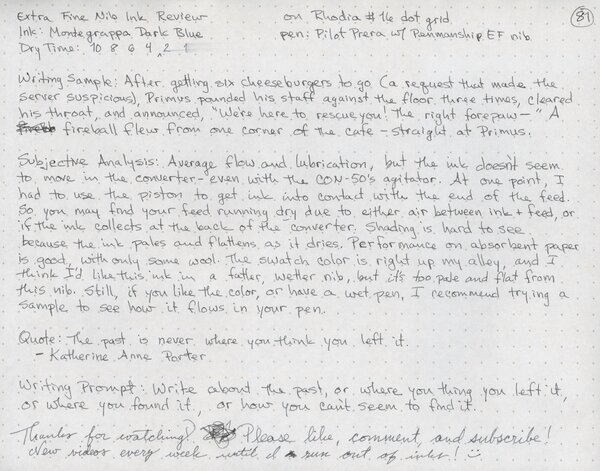 Extra Fine Nib Ink Review on Rhodia #16 dot grid 81
Ink: Montegrappa Dark Blue pen: Pilot Prera w/ Penmanship EF nib
Dry Time: 10 8 6 4 2 1
Writing Sample: After getting six cheeseburgers to go (a request that made the
server suspicious), Primus pounded his staff against the floor three times, cleared
his throat, and announced, "We're here to rescue you! The right forepaw-" A
fireball flew from one corner of the cafe - straight at Primus.
Subjective Analysis: Average flow and lubrication, but the ink doesn't seem
to move in the converter - even with the CON-50's agitator. At one point, I
had to use the piston to get ink into contact with the end of the feed.
So you may find your feed running dry due to either air between ink + feed, or
if the ink collects at the back of the converter. Shading is hard to see
because the ink pales and flattens as it dries. Performance on absorbent paper
is good, with only some wool. The swatch color is right up my alley, and I
think I'd like this ink in a fatter, wetter nib, but it's too pale and flat from
this nib. Still, if you like the color, or have a wet pen, I recommend trying a
sample to see how it flows in your pen.
Quote: The past is never where you think you left it.
- Katherine Anne Porter
Writing Prompt: Write about the past, or where you thing you left it,
or where you found it, or how you can't seem to find it.
Thanks for watching! Please like, comment, and subscribe!
New videos every week until I run out of inks!